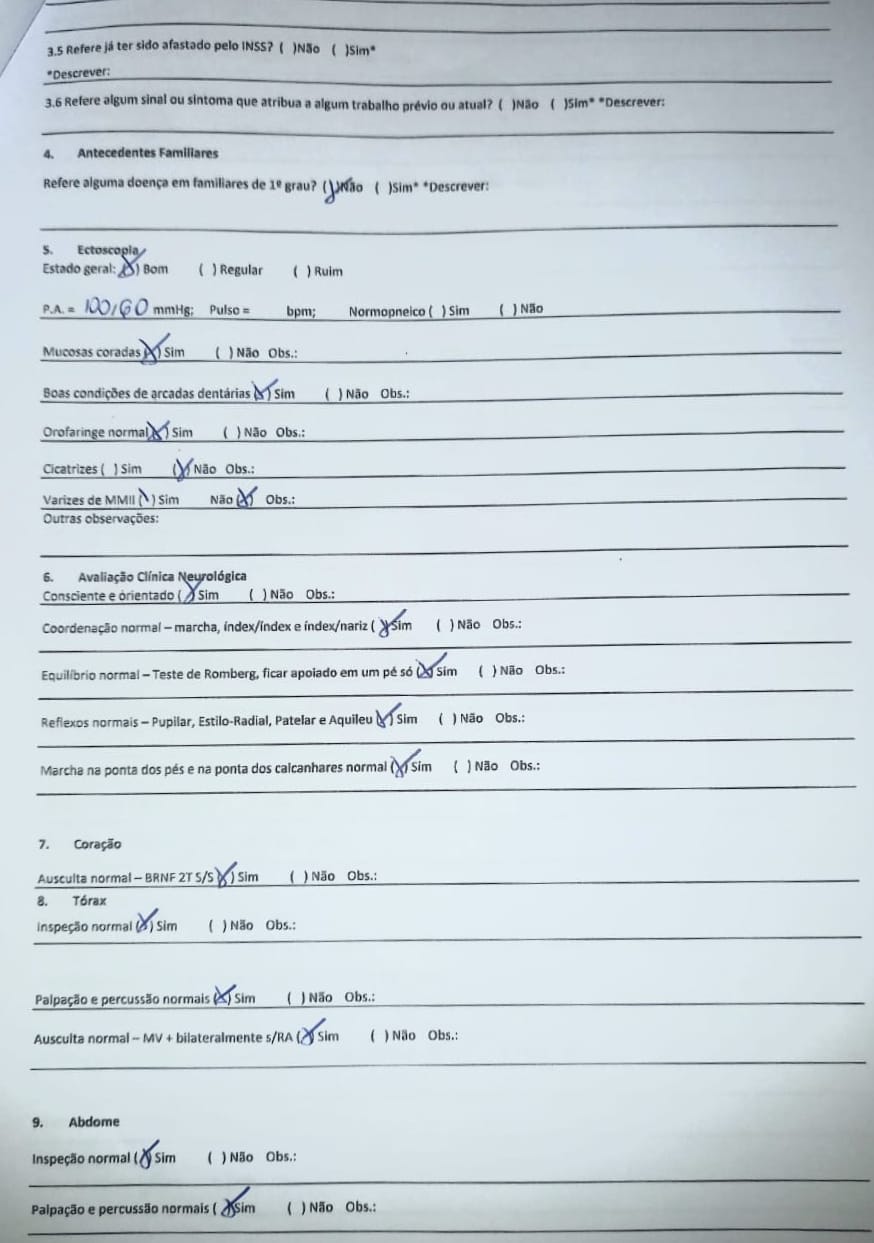 3.5 Refere já ter sido afastado pelo INSS? ( )Não ( )Sim*
*Descrever:
3.6 Refere algum sinal ou sintoma que atribua a algum trabalho prévio ou atual? ( )Não ( )Sim* *Descrever:
4. Antecedentes Familiares
Refere alguma doença em familiares de 1º grau? (X)Não ( )Sim* *Descrever:
5. Ectoscopia
Estado geral: (X) Bom ( ) Regular ( ) Ruim
P.A. = 100/60 mmHg; Pulso = bpm; Normopneico ( ) Sim ( ) Não
Mucosas coradas (X) Sim ( ) Não Obs.:
Boas condições de arcadas dentárias (X) Sim ( ) Não Obs.:
Orofaringe normal (X) Sim ( ) Não Obs.:
Cicatrizes ( ) Sim (X) Não Obs.:
Varizes de MMII (\) Sim Não (X) Obs.:
Outras observações:
6. Avaliação Clínica Neurológica
Consciente e orientado (X) Sim ( ) Não Obs.:
Coordenação normal – marcha, índex/índex e índex/nariz (X) Sim ( ) Não Obs.:
Equilíbrio normal – Teste de Romberg, ficar apoiado em um pé só (X) Sim ( ) Não Obs.:
Reflexos normais – Pupilar, Estilo-Radial, Patelar e Aquileu (X) Sim ( ) Não Obs.:
Marcha na ponta dos pés e na ponta dos calcanhares normal (X) Sim ( ) Não Obs.:
7. Coração
Ausculta normal – BRNF 2T S/S (X) Sim ( ) Não Obs.:
8. Tórax
Inspeção normal (X) Sim ( ) Não Obs.:
Palpação e percussão normais (X) Sim ( ) Não Obs.:
Ausculta normal – MV + bilateralmente s/RA (X) Sim ( ) Não Obs.:
9. Abdome
Inspeção normal (X) Sim ( ) Não Obs.:
Palpação e percussão normais (X) Sim ( ) Não Obs.: